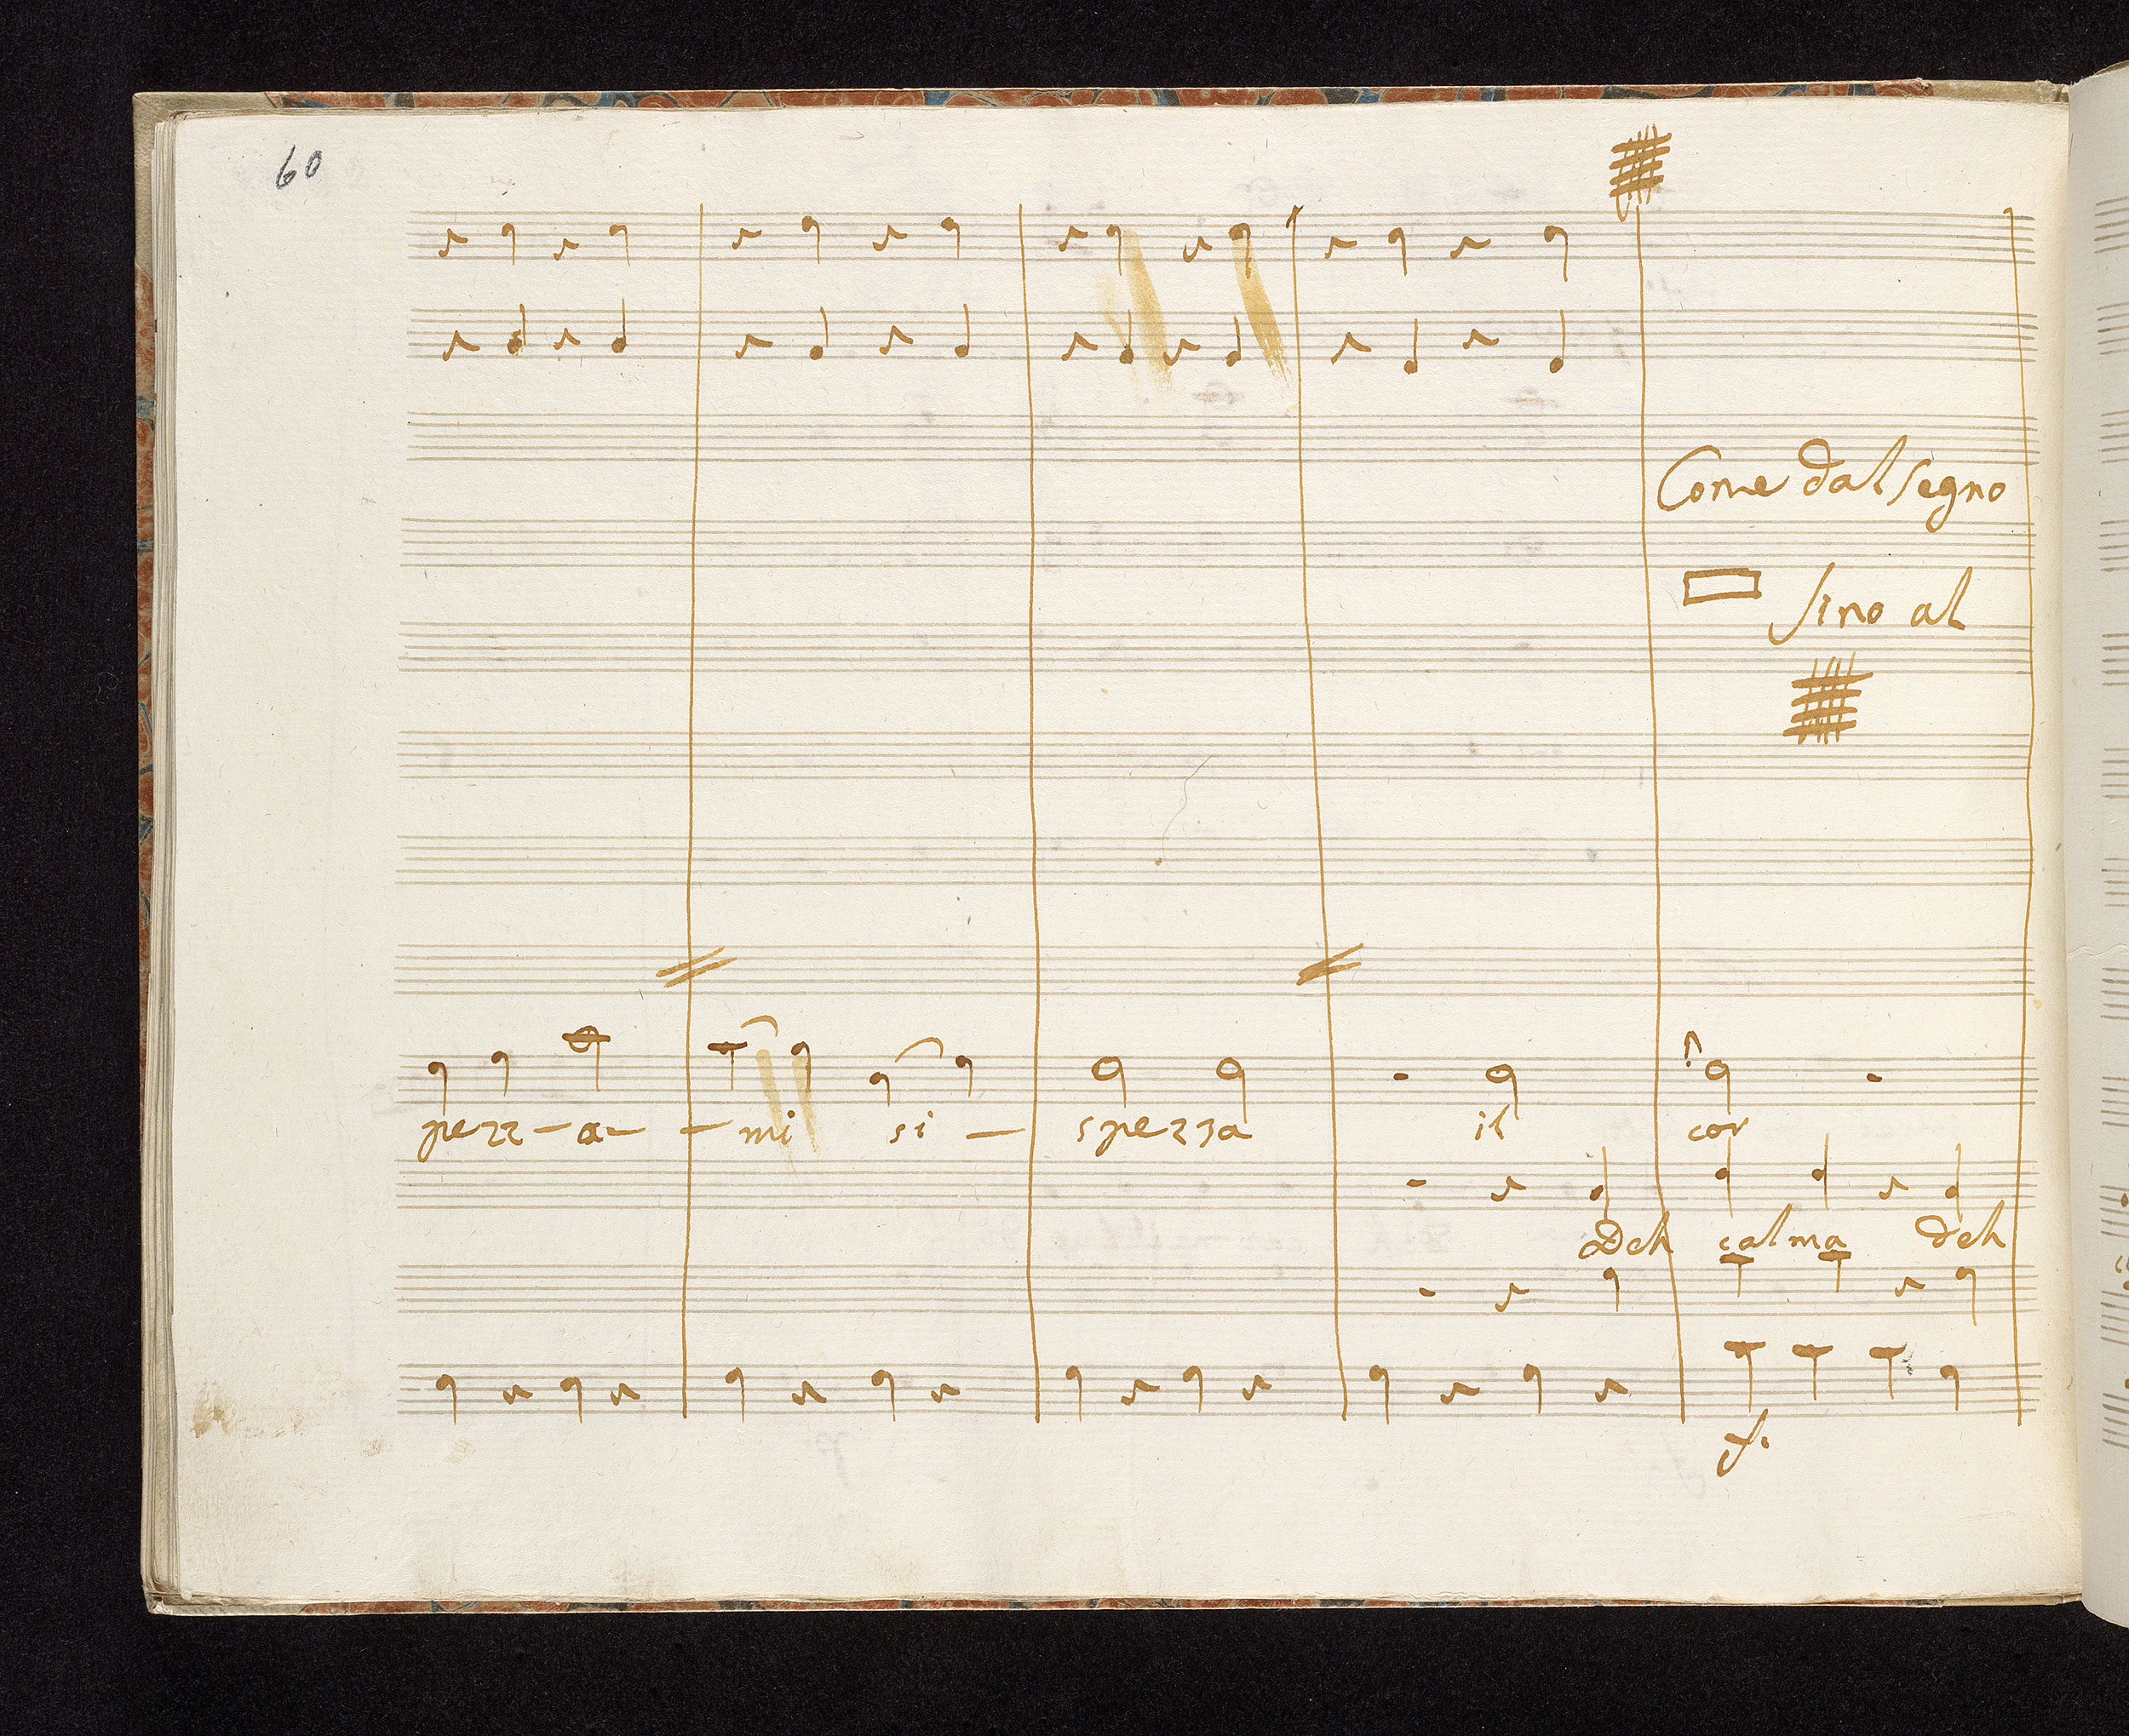 60
Come dal segno
sino al
pezz-a- -mi si - spezza il cor
Deh calma deh
f.